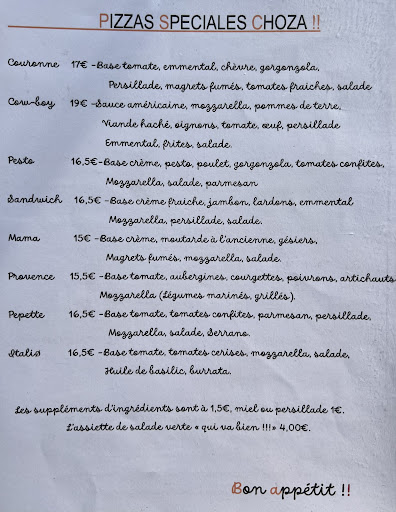 PIZZAS SPECIALES CHOZA !!
Couronne 17€ -Base tomate, emmental, chèvre, gorgonzola,
Persillade, magrets fumés, tomates fraiches, salade
Cow-boy 19€ -Sauce américaine, mozzarella, pommes de terre,
Viande haché, oignons, tomate, œuf, persillade
Emmental, frites, salade.
Pesto 16,5€-Base crème, pesto, poulet, gorgonzola, tomates confites,
Mozzarella, salade, parmesan
Sandwich 16,5€ -Base crème fraiche, jambon, lardons, emmental
Mozzarella, persillade, salade.
Mama 15€ -Base crème, moutarde à l'ancienne, gésiers,
Magrets fumés, mozzarella, salade.
Provence 15,5€ -Base tomate, aubergines, courgettes, poivrons, artichauts
Mozzarella (Légumes marinés, grillés).
Pepette 16,5€ -Base tomate, tomates confites, parmesan, persillade,
Mozzarella, salade, Serrano.
Italia 16,5€ -Base tomate, tomates cerises, mozzarella, salade,
Huile de basilic, burrata.
Les suppléments d'ingrédients sont à 1,5€, miel ou persillade 1€.
L'assiette de salade verte « qui va bien !!!» 4,00€.
Bon appétit !!